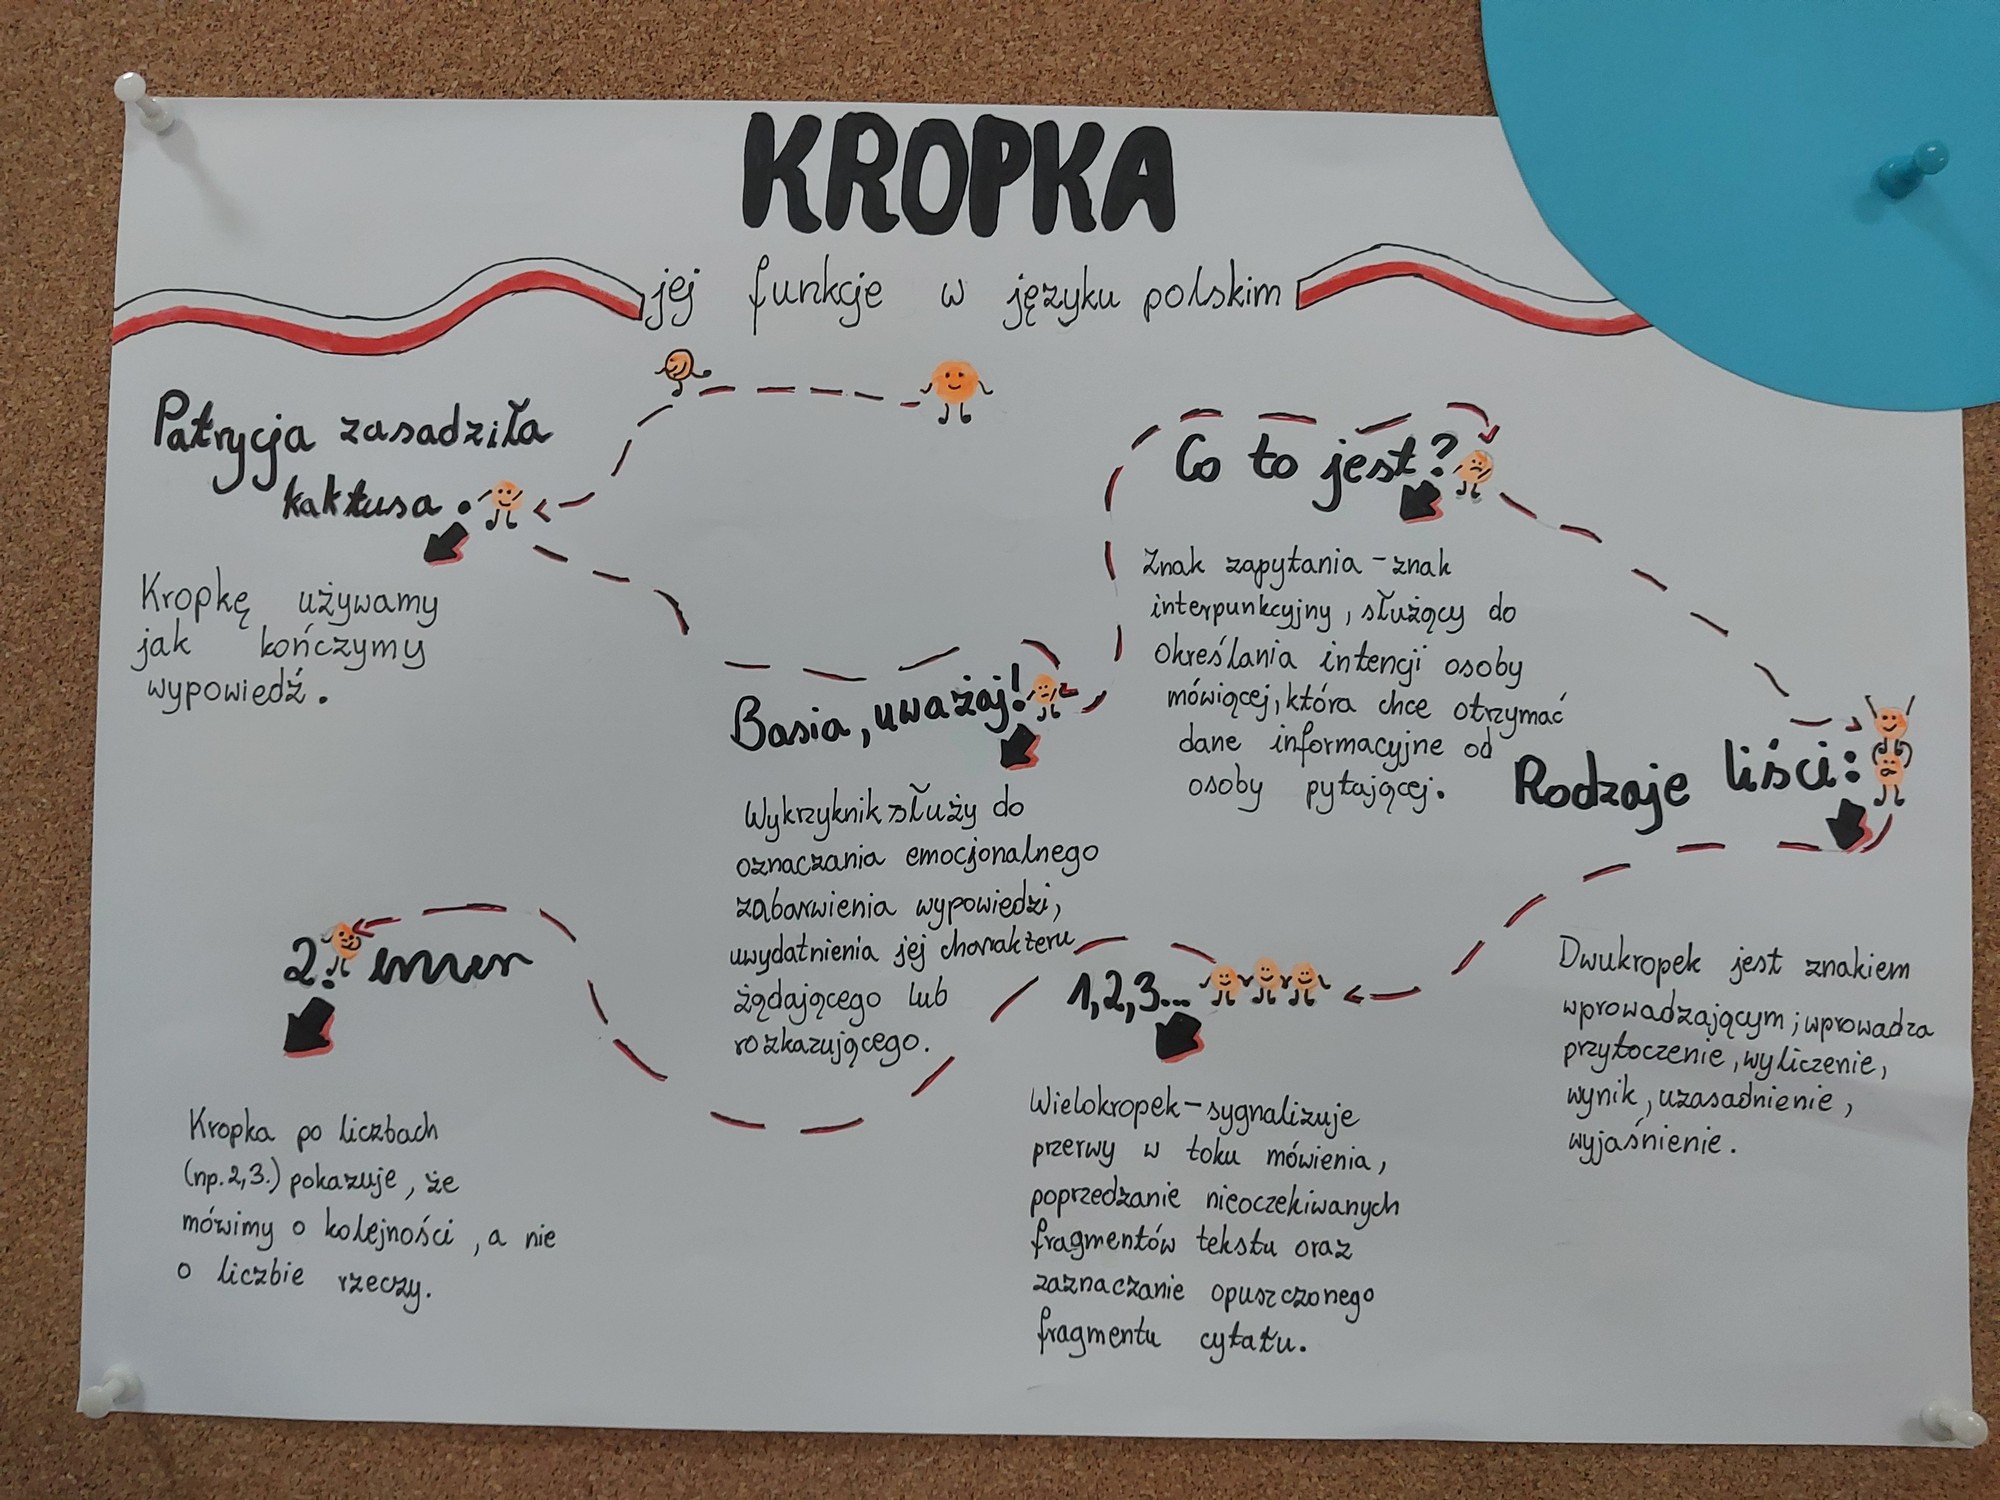 KROPKA
jej funkcje w języku polskim
Patrycja zasadziła
kaktusa.
Kropkę używamy
jak kończymy
wypowiedź.
Basia, uważaj!
Wykrzyknik służy do
oznaczania emocjonalnego
zabarwienia wypowiedzi,
uwydatnienia jej charakteru
żądającego lub
rozkazującego.
Co to jest?
Znak zapytania - znak
interpunkcyjny, służący do
określania intencji osoby
mówiącej, która chce otrzymać
dane informacyjne od
osoby pytającej.
Rodzaje liści:
Dwukropek jest znakiem
wprowadzającym; wprowadza
przytoczenie, wyliczenie,
wynik, uzasadnienie,
wyjaśnienie.
1,2,3...
Wielokropek - sygnalizuje
przerwy w toku mówienia,
poprzedzanie nieoczekiwanych
fragmentów tekstu oraz
zaznaczanie opuszczonego
fragmentu cytatu.
2.
Kropka po liczbach
(np. 2,3.) pokazuje, że
mówimy o kolejności, a nie
o liczbie rzeczy.